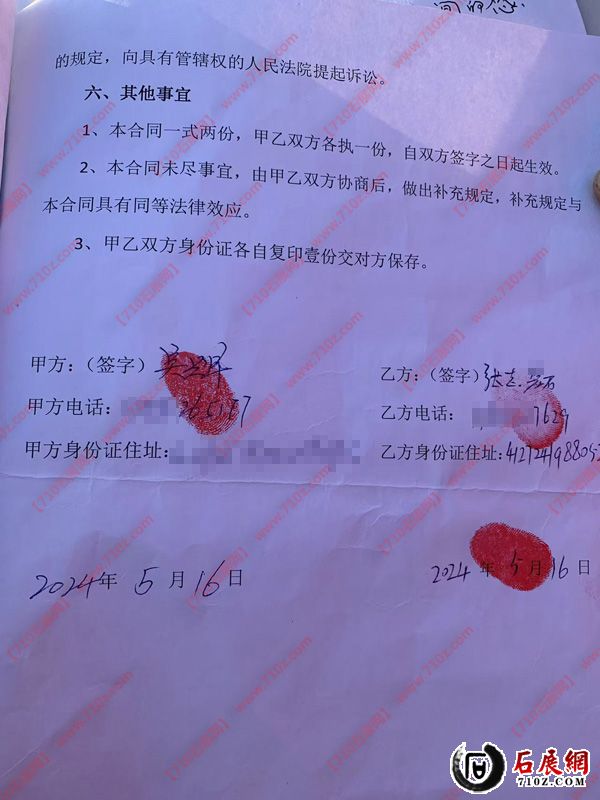 的规定，向具有管辖权的人民法院提起诉讼。
六、其他事宜
1、本合同一式两份，甲乙双方各执一份，自双方签字之日起生效。
2、本合同未尽事宜，由甲乙双方协商后，做出补充规定，补充规定与
本合同具有同等法律效应。
3、甲乙双方身份证各自复印壹份交对方保存。
甲方：（签字）
乙方：（签字）张志
甲方电话：
乙方电话：7629
甲方身份证住址：
乙方身份证住址：
2024年5月16日
2024年5月16日
【710石展网】www.710z.com
石展網
710Z.COM